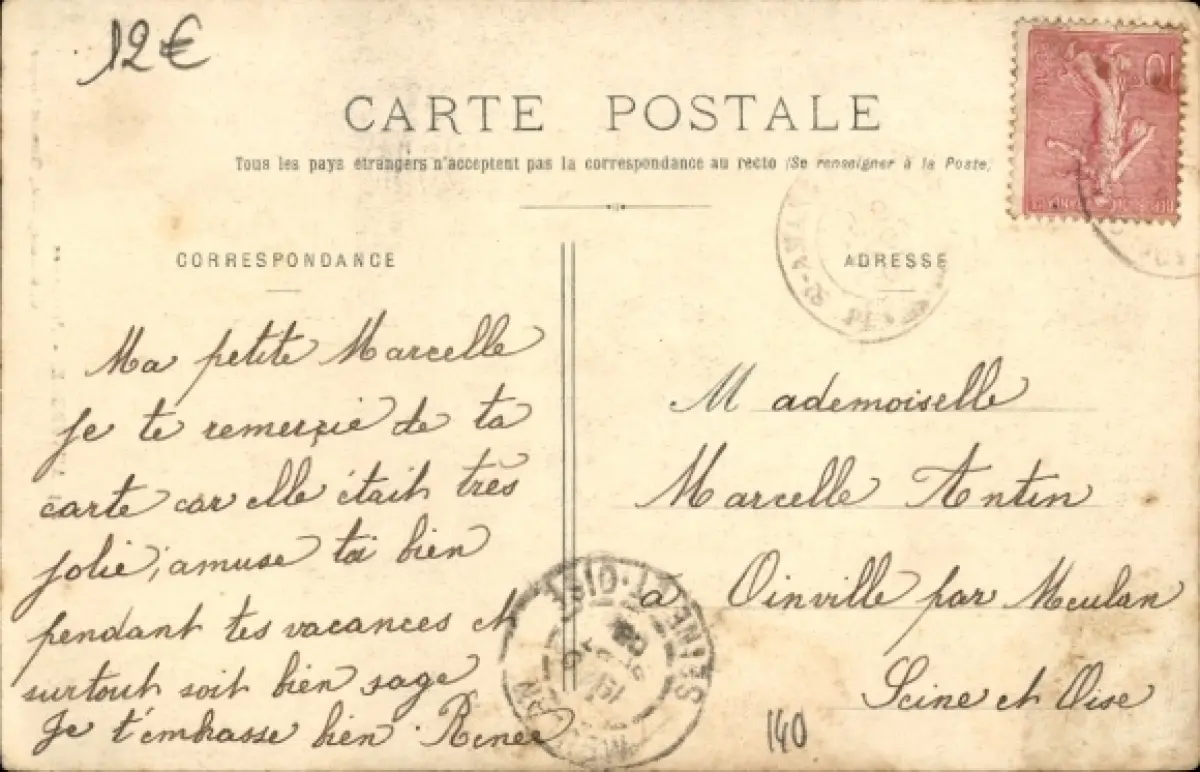 12€
CARTE POSTALE
Tous les pays étrangers n'acceptent pas la correspondance au recto (Se renseigner à la Poste)
CORRESPONDANCE
Ma petite Marcelle
Je te remercie de ta
carte car elle était très
jolie, amuse toi bien
pendant tes vacances et
surtout soit bien sage
Je t'embrasse bien. Renée
ADRESSE
M ademoiselle
Marcelle Antin
à Oinville par Meulan
Seine et Oise
10
SEINE-ET-OISE
140